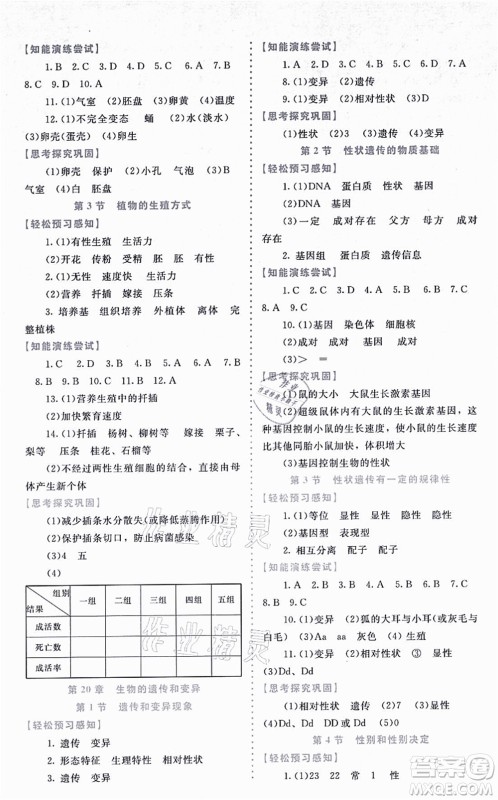 【知能演练尝试】
1. B  2. C  3. D  4. D  5. C  6. A  7. B
8. C  9. D  10. A
11. (1)气室  (2)胚盘  (3)卵黄  (4)温度
12. (1)不完全变态  蛹  (2)水(淡水)
(3)卵壳(蛋壳)  (4)卵生
【思考探究巩固】
(1)卵壳  保护  (2)小孔  气孔  (3)B
气室  (4)白  胚盘
第 3 节  植物的生殖方式
【轻松预习感知】
1. (1)有性生殖  生活力
(2)开花  传粉  受精  胚  胚  有性
2. (1)无性  速度快  生活力
(2)营养  扦插  嫁接  压条
3. 培养基  组织培养  小  大  营养  完
整植株
【知能演练尝试】
1. C  2. B  3. D  4. C  5. A  6. D  7. C
8. D  9. D  10. B  11. A  12. A
13. (1)营养生殖中的扦插
14. (1)扦插  杨树、柳树等  嫁接  栗子、
梨等  压条  桂花、石榴等
(2)都不经过两性生殖细胞的结合,由母
体直接产生新个体
【思考探究巩固】
(1)减少插条水分散失(或降低蒸腾作用)
(2)保护插条切口,防止病菌感染
(3)4  五
(4)
组别
结果
一组  二组  三组  四组  五组
成活数
死亡数
成活率
第 20 章  生物的遗传和变异
第 1 节  遗传和变异现象
【轻松预习感知】
1. 遗传  变异
2. 形态特征  生理特性  行为方式
3. 遗传  变异
【知能演练尝试】
1. A  2. B  3. D  4. C  5. A  6. A  7. B
8. C
9. (1)变异  (2)遗传
10. (1)变异  (2)相对性状  (3)D
【思考探究巩固】
(1)性状  (2)3  (3)遗传  (4)变异
第 2 节  性状遗传的物质基础
【轻松预习感知】
1. (1)DNA  蛋白质  性状  基因
(2)DNA  基因
(3)一定  成对存在  父方  母方  成
对存在
2. 基因组  蛋白质  遗传信息
【知能演练尝试】
1. C  2. B  3. C  4. D  5. C  6. A  7. D
8. A  9. C
10. (1)基因  染色体  细胞核
(2)成对  成对  基因  基因
(3)>  =
【思考探究巩固】
(1)鼠的大小  大鼠生长激素基因
(2)超级鼠体内有大鼠的生长激素基因,这
种基因控制小鼠的生长速度,使小鼠的生长速
度加快,体积增大
(3)基因控制生物的性状
第 3 节  性状遗传有一定的规律性
【轻松预习感知】
1. (1)等位  显性  隐性  显性  隐性
(2)基因型  表现型
2. 相互分离  配子  配子
【知能演练尝试】
1. A  2. D  3. A  4. D  5. D  6. A  7. C
8. B  9. C
10. (1)变异  (2)狐的大耳与小耳(或灰毛与
白毛)  (3)Aa  aa  灰色  (4)生殖
11. (1)遗传  (2)相对性状  ③  显性
(3)Dd  Dd
【思考探究巩固】
(1)相对性状  遗传  (2)7  (3)显性
(4)Dd、DD 或 Dd  (5)0
第 4 节  性别和性别决定
【轻松预习感知】
1. (1)23  22  常  1  性